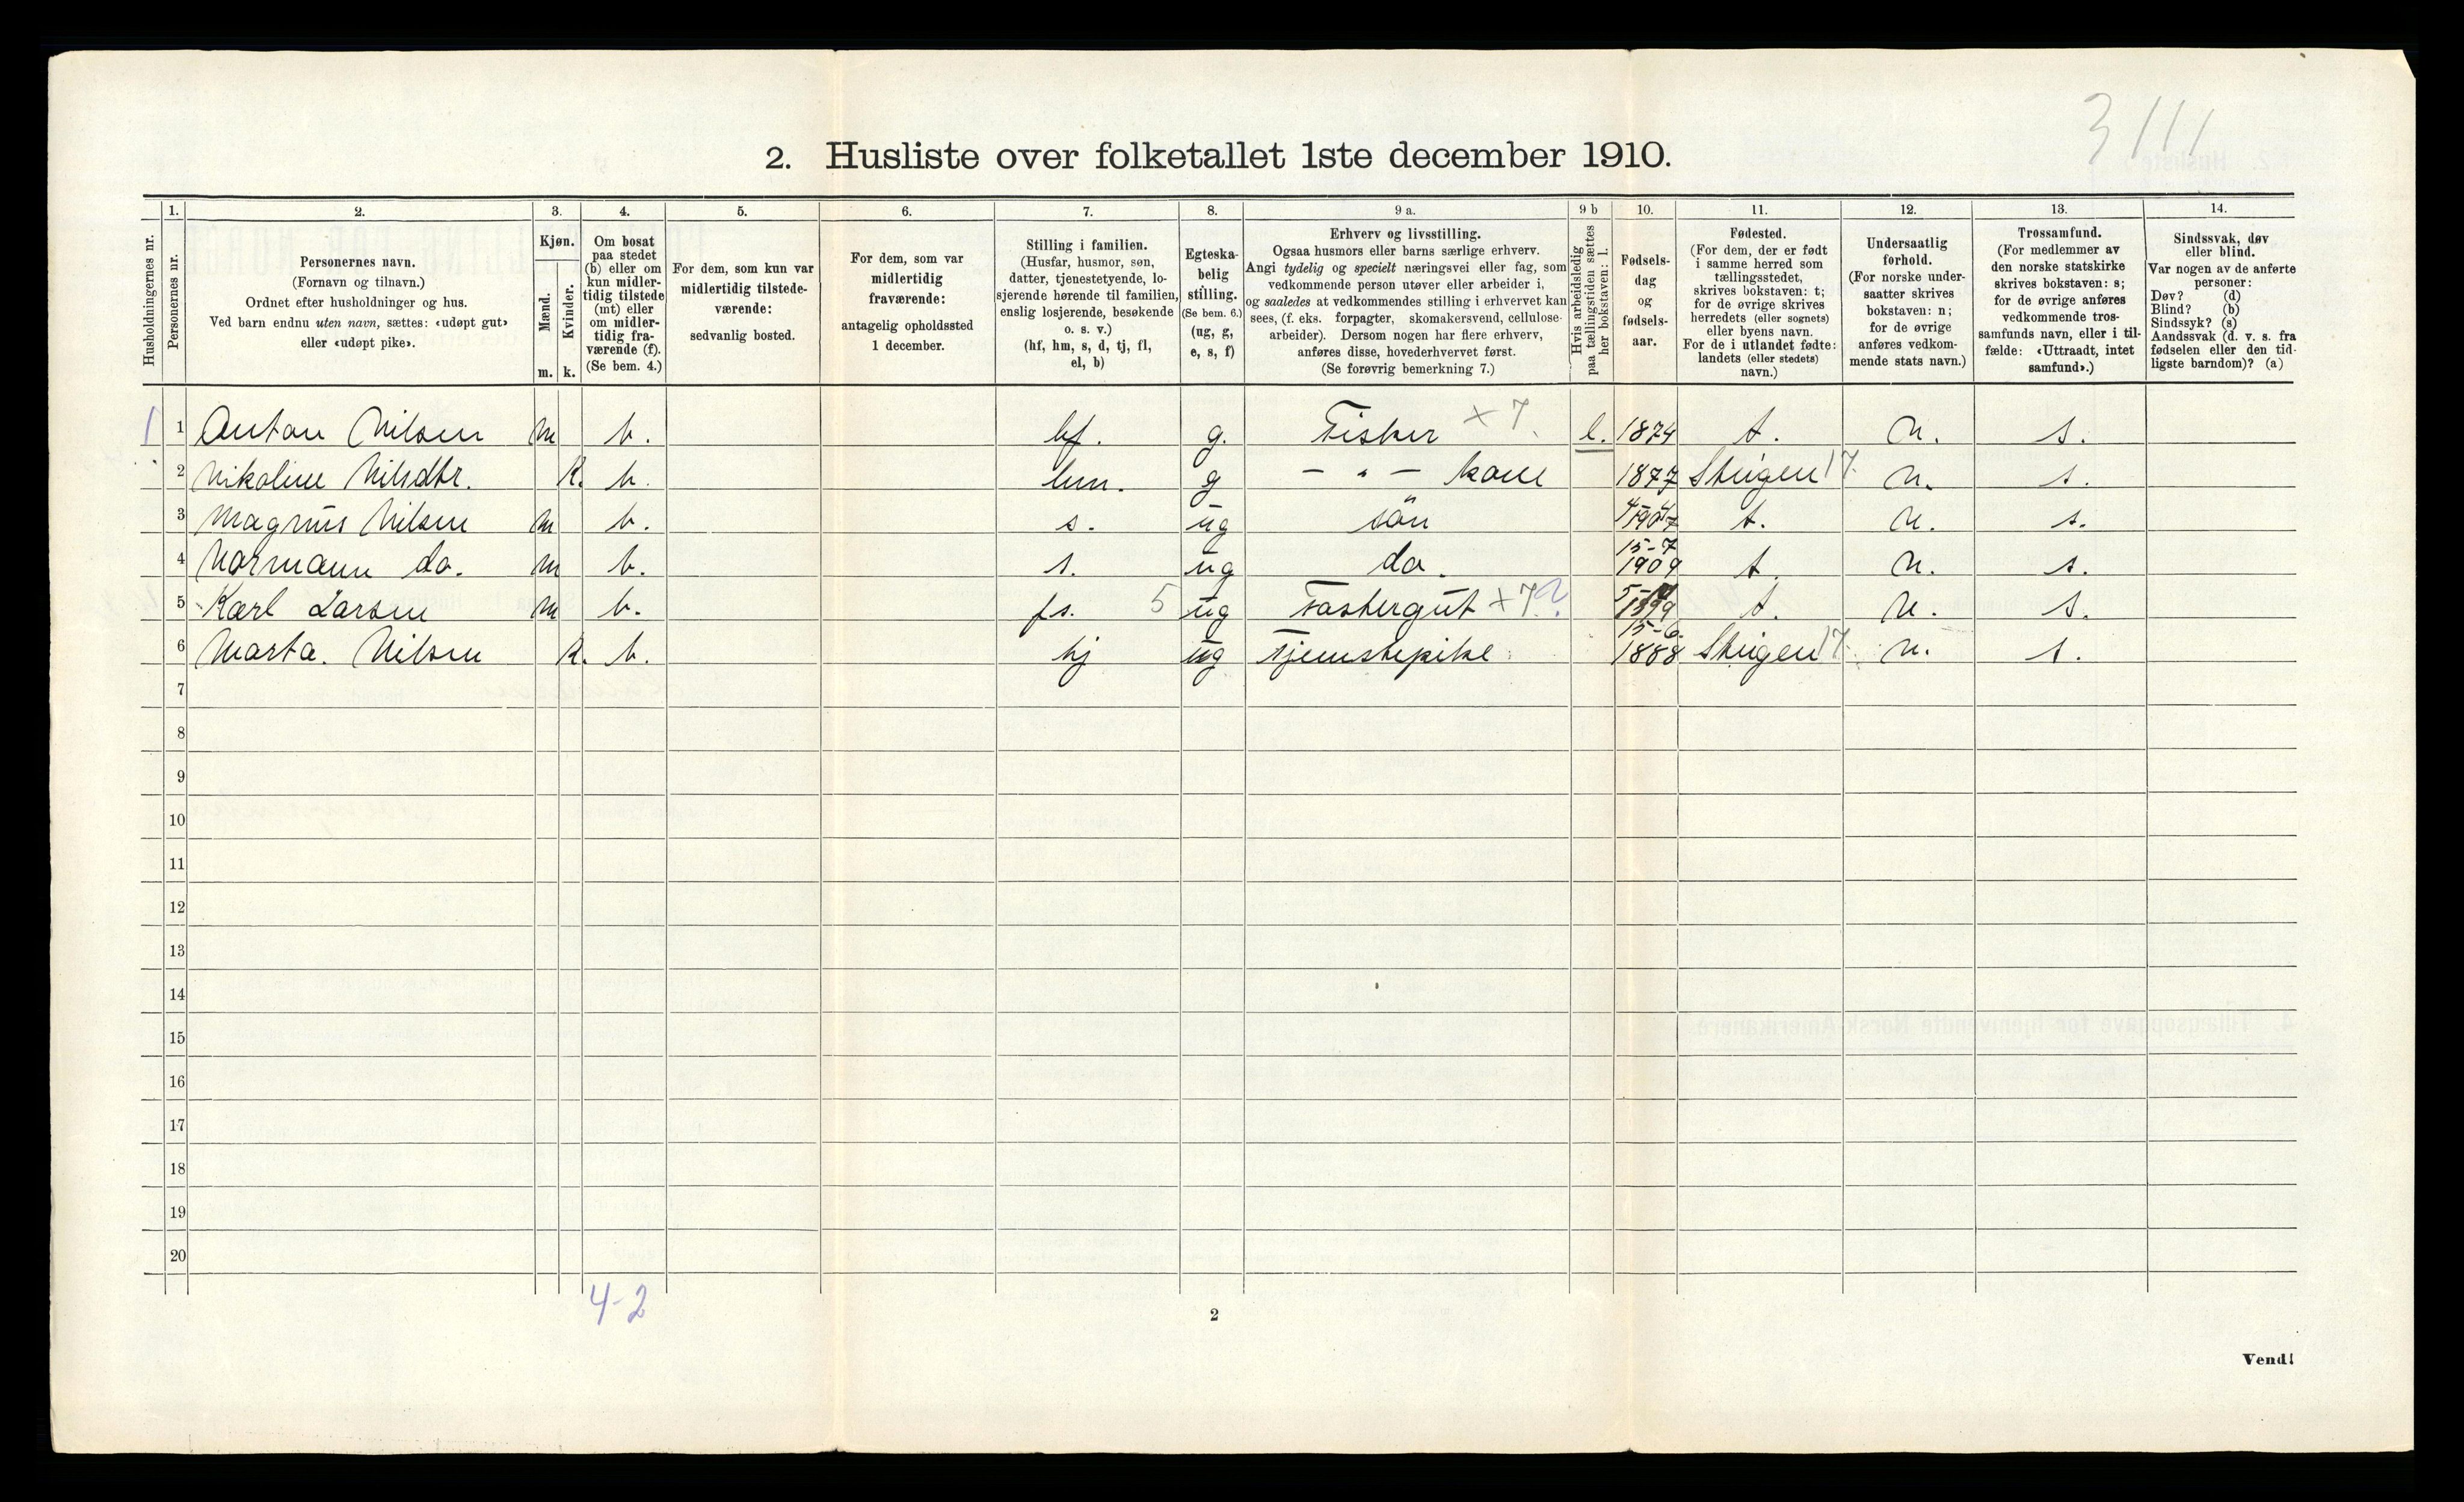 3/11
2. Husliste over folketallet 1ste december 1910.
Husholdningernes nr.
1. Personernes nr.
2. Personernes navn.
(Fornavn og tilnavn.)
Ordnet efter husholdninger og hus.
Ved barn endnu uten navn, sættes: «udøpt gut»
eller «udøpt pike».
3. Kjøn.
Mænd. m.
Kvinder. k.
4. Om bosat
paa stedet
(b) eller om
kun midler-
tidig tilstede
(mt) eller
om midler-
tidig fra-
værende (f).
(Se bem. 4.)
5. For dem, som kun var
midlertidig tilstede-
værende:
sedvanlig bosted.
6. For dem, som var
midlertidig
fraværende:
antagelig opholdssted
1 december.
7. Stilling i familien.
(Husfar, husmor, søn,
datter, tjenestetyende, lo-
sjerende hørende til familien,
enslig losjerende, besøkende
o. s. v.)
(hf, hm, s, d, tj, fl,
el, b)
8. Egteska-
belig
stilling.
(Se bem. 6.)
(ug, g,
e, s, f)
9 a. Erhverv og livsstilling.
Ogsaa husmors eller barns særlige erhverv.
Angi tydelig og specielt næringsvei eller fag, som
vedkommende person utøver eller arbeider i,
og saaledes at vedkommendes stilling i erhvervet kan
sees, (f. eks. forpagter, skomakersvend, cellulose-
arbeider). Dersom nogen har flere erhverv,
anføres disse, hovederhvervet først.
(Se forøvrig bemerkning 7.)
9 b Hvis arbeidsledig
paa tællingstiden sættes
her bokstaven: l.
10. Fødsels-
dag
og
fødsels-
aar.
11. Fødested.
(For dem, der er født
i samme herred som
tællingsstedet,
skrives bokstaven: t;
for de øvrige skrives
herredets (eller sognets)
eller byens navn.
For de i utlandet fødte:
landets (eller stedets)
navn.)
12. Undersaatlig
forhold.
(For norske under-
saatter skrives
bokstaven: n;
for de øvrige
anføres vedkom-
mende stats navn.)
13. Trossamfund.
(For medlemmer av
den norske statskirke
skrives bokstaven: s;
for de øvrige anføres
vedkommende tros-
samfunds navn, eller i til-
fælde: «Uttraadt, intet
samfund».)
14. Sindssvak, døv
eller blind.
Var nogen av de anførte
personer:
Døv? (d)
Blind? (b)
Sindssyk? (s)
Aandssvak (d. v. s. fra
fødselen eller den tid-
ligste barndom)? (a)
1 1 Anton Nilsen m b. hf. g. Fisker x 7. l. 1874 t. n. s.
2 Nikoline Nilsdtr. K. b. hm. g - " - kone 1877 Steigen 17 n. s.
3 Magnus Nilsen m b. s. ug sön t. n. s.
4 Normann do. m b. s. ug do. 15-7 1909 t. n. s.
5 Karl Larsen m b. fs. 5 ug Fostergut x 7 ? t. n. s.
6 Marta. Nilsen K. b. tj ug Tjenestepike 15-6. 1888 Steigen 17 n. s.
7
8
9
10
11
12
13
14
15
16
17
18
19
20
4-2
2
Vend!